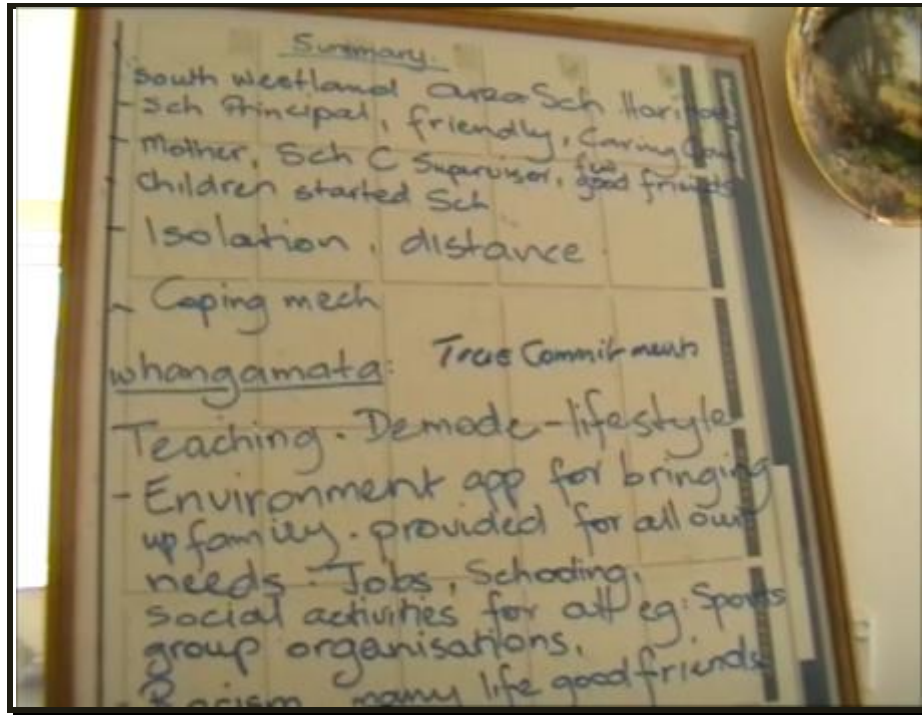 Summary.
South Westland Area Sch
- Sch Principal, friendly, Caring
- Mother, Sch C Supervisor, few good friends
- Children started Sch
- Isolation, distance.
- Coping mech
Whangamata: True Commitment
Teaching. Demode-lifestyle
- Environment app for bringing
up family. provided for all our
needs. Jobs, Schooling,
social activities for all eg: Sports
group organisations,
- Racism many life good friends